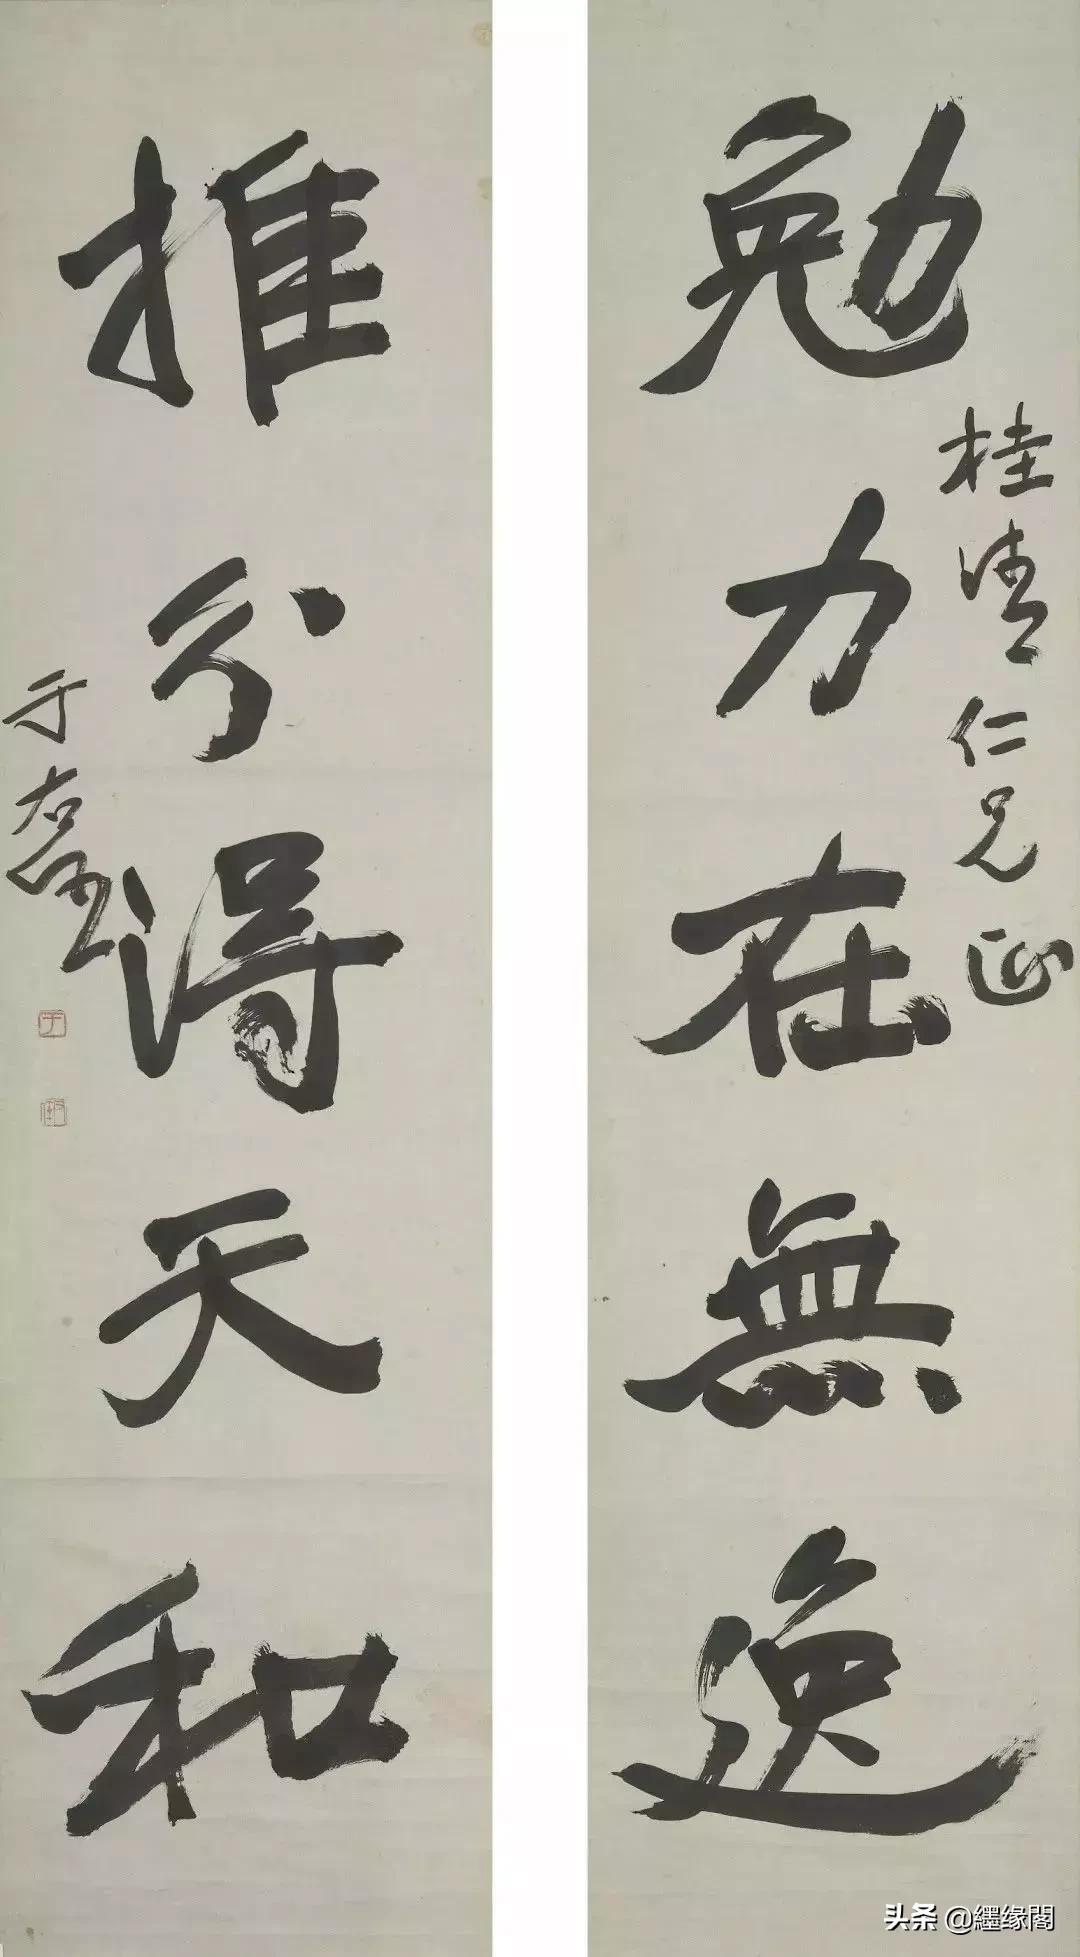 勉力在無逸
桂清仁兄正
推分得天和
于右任
于
头条 @纆缘閣